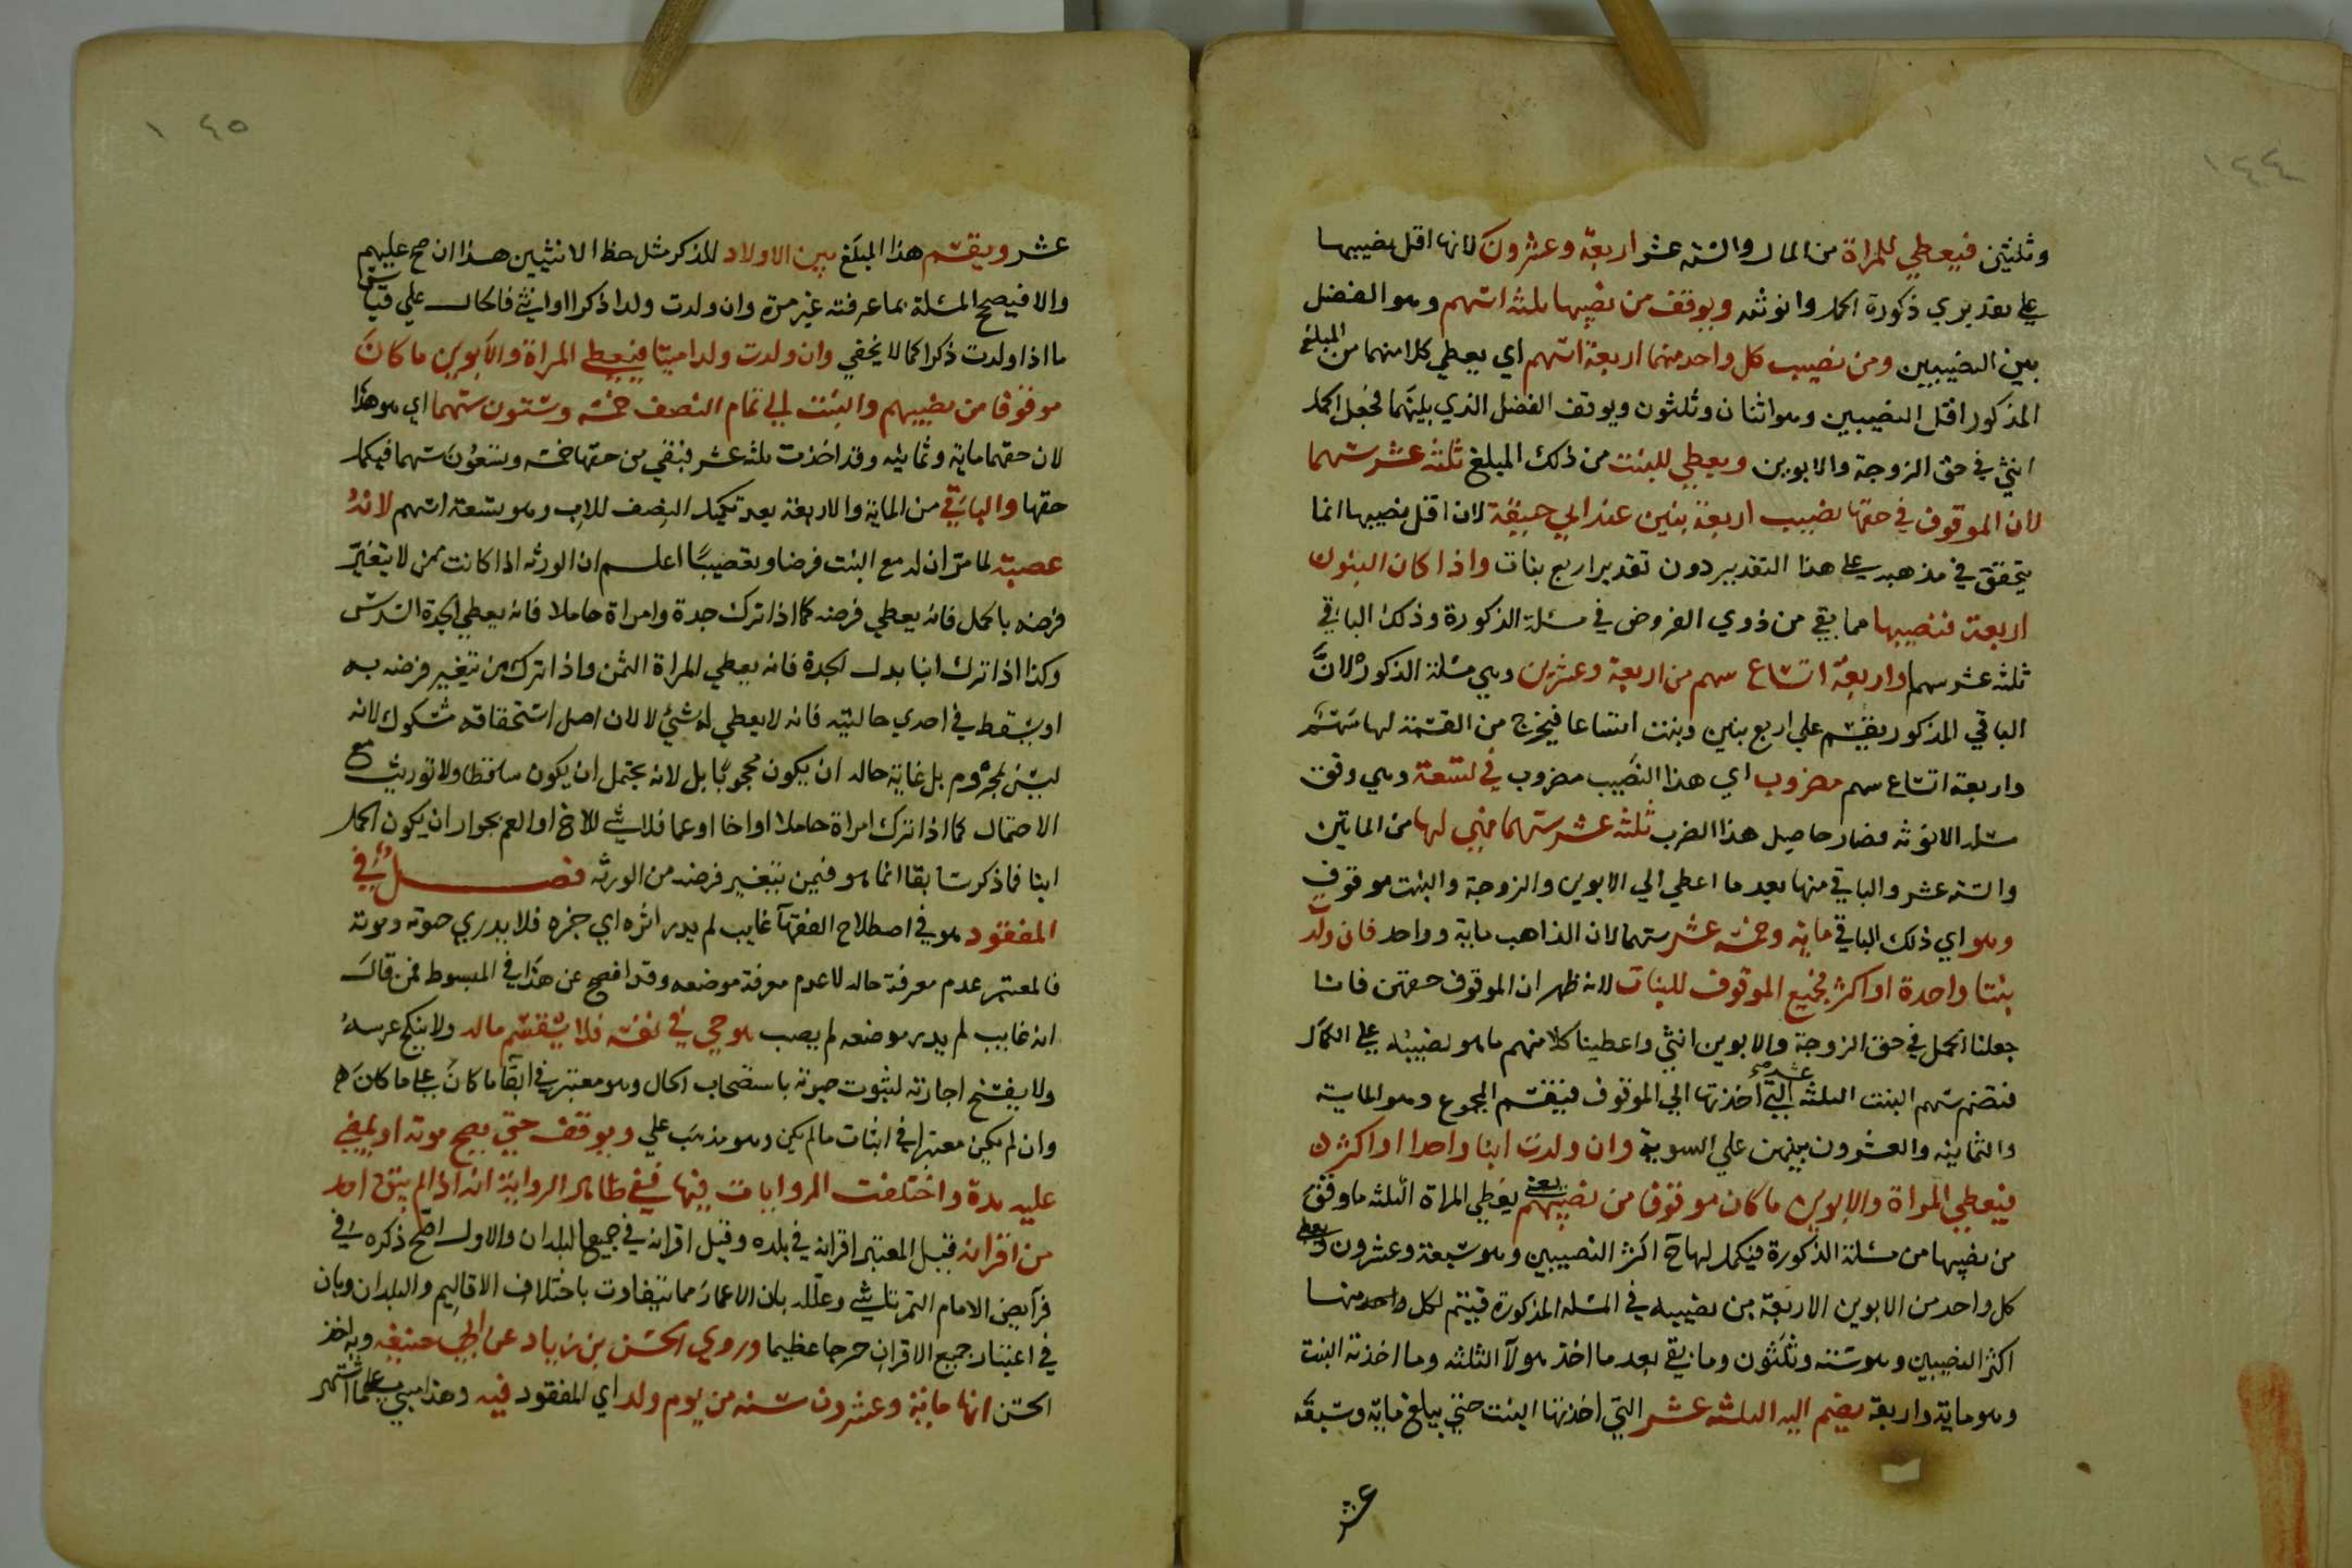 ١٤٤
وثلثين فيعطي للمراة من المال والستة عشر اربعة وعشرون لانها اقل نصيبها
علي تقديري ذكورة الحمل وانوثته ويوقف من نصيبها ثلثة اسهم وهو الفضل
بين النصيبين ومن نصيب كل واحد منهما اربعة اسهم اي يعطي كلا منهما من المبلغ
المذكور اقل النصيبين وهو اثنان وثلثون ويوقف الفضل الذي بينهما فجعل الحمل
انثي في حق الزوجة والابوين ويعطي للبنت من ذلك المبلغ ثلثة عشر سهما
لان الموقوف في حقها نصيب اربعة بنين عند ابي حنيفة لان اقل نصيبها انما
يتحقق في مذهبه علي هذا التقدير دون تقدير اربع بنات واذا كان البنون
اربعة فنصيبها مما بقي من ذوي الفروض في مسئلة الذكورة وذلك الباقي
ثلثة عشر سهما واربعة اتساع سهم من اربعة وعشرين وهي مسئلة الذكورة لان
الباقي المذكور يقسم علي اربع بنين وبنت اتساعا فيخرج من القسمة لها سهم
واربعة اتساع سهم مضروب اي هذا النصيب مضروب في تسعة وهي وفق
مسئلة الانوثة فصار حاصل هذا الضرب ثلثة عشر سهما فهي لها من المايتين
والستة عشر والباقي منها بعد ما اعطي الي الابوين والزوجة والبنت موقوف
وهو اي ذلك الباقي ماية وخمسة عشر سهما لان الذاهب ماية وواحد فان ولدت
بنتا واحدة او اكثر فجميع الموقوف للبنات لانه ظهر ان الموقوف حقهن فانا
جعلنا الحمل في حق الزوجة والابوين انثي واعطينا كلا منهم ما هو نصيبه علي الكمال
فنضم سهم البنت الثلثة عشر التي اخذتها الي الموقوف فيقسم المجموع وهو الماية
والثمانية والعشرون بينهن علي السوية وان ولدت ابنا واحدا او اكثر
فيعطي المراة والابوين ما كان موقوفا من نصيبهم يعني يعطي المراة الثلثة ما وقف
من نصيبها من مسئلة الذكورة فيكمل لها ح اكثر النصيبين وهو سبعة وعشرون ويعطي
كل واحد من الابوين الاربعة من نصيبه في المسئلة المذكورة فيتم لكل واحد منهما
اكثر النصيبين وهو ستة وثلثون وما بقي بعد ما اخذ هولآ الثلثة وما اخذته البنت
وهو ماية واربعة يضم اليه الثلثة عشر التي اخذتها البنت حتي يبلغ ماية وسبعة
عشر
١٤٥
عشر ويقسم هذا المبلغ بين الاولاد للذكر مثل حظ الانثيين هذا ان صح عليهم
والا فيصح المسئلة بما عرفته غير مرة وان ولدت ولدا ذكرا او انثي فالحال علي قياس
ما اذا ولدت ذكرا كما لا يخفي وان ولدت ولدا ميتا فيعطي المراة والابوين ما كان
موقوفا من نصيبهم والبنت الي تمام النصف خمسة وتسعون سهما اي هو هذا
لان حقها ماية وثمانية وقد اخذت ثلثة عشر فبقي من حقها خمسة وتسعون سهما فيكمل
حقها والباقي من الماية والاربعة بعد تكميل النصف للاب وهو تسعة اسهم لانه
عصبة لما مر ان له مع البنت فرضا وتعصيبا اعلم ان الورثة اذا كانت ممن لا يتغير
فرضه بالحمل فانه يعطي فرضه كما اذا ترك جدة وامراة حاملا فانه يعطي الجدة السدس
وكذا اذا ترك ابنا بدل الجدة فانه يعطي المراة الثمن واذا ترك من يتغير فرضه به
او يسقط في احدي حالتيه فانه لا يعطي له شئ لا لان اصل استحقاقه مشكوك لانه
ليس بمحروم بل غاية حاله ان يكون محجوبا بل لانه يحتمل ان يكون ساقطا ولا توريث مع
الاحتمال كما اذا ترك امراة حاملا او اخا او عما فلا شئ للاخ او العم بجواز ان يكون الحمل
ابنا فما ذكر سابقا انما هو فيمن يتغير فرضه من الورثة فصل في
المفقود هو في اصطلاح الفقهآ غايب لم يدر اثره اي خبره فلا يدري حيوته وموته
فالمعتبر عدم معرفة حاله لا عدم معرفة موضعه وقد افصح عن هذا في المبسوط فمن قال
انه غايب لم يدر موضعه لم يصب هو حي في نفسه فلا يقسم ماله ولا ينكح عرسه
ولا يفسخ اجارته لثبوت حيوته باستصحاب الحال وهو معتبر في ابقآ ما كان علي ما كان
وان لم يكن معتبرا في اثبات ما لم يكن وهو مذهب علي ويوقف حتي يصح موته او يمضي
عليه مدة واختلفت الروايات فيها ففي ظاهر الرواية انه اذا لم يبق احد
من اقرانه فقيل المعتبر اقرانه في بلده وقيل اقرانه في جميع البلدان والاول اصح ذكره في
فرآيض الامام التمرتاشي وعلله بان الاعمار مما يتفاوت باختلاف الاقاليم والبلدان وبان
في اعتبار جميع الاقران حرجا عظيما وروي الحسن بن زياد عن ابي حنيفه وبه اخذ
الحسن انها ماية وعشرون سنة من يوم ولد اي المفقود فيه وهذا مبني علي ما اشتهر